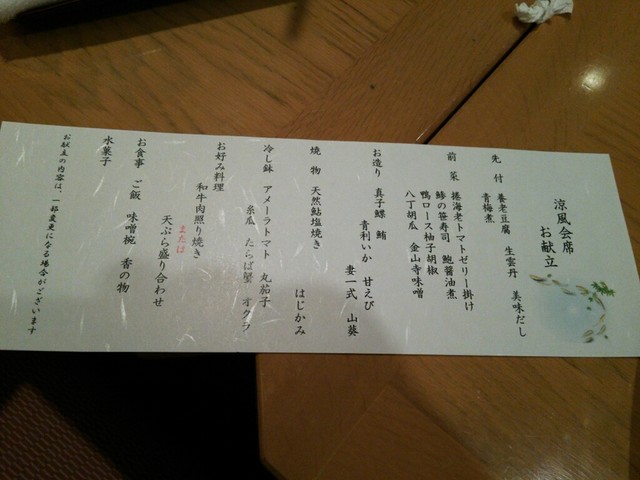 涼風会席
お献立
先付 養老豆腐 生雲丹 美味だし
青梅煮
前菜 捲海老トマトゼリー掛け
鯵の笹寿司 鮑醤油煮
鴨ロース柚子胡椒
八丁胡瓜 金山寺味噌
お造り 真子鰈 鮪
青利いか 甘えび
妻一式 山葵
焼物 天然鮎塩焼き
はじかみ
冷し鉢 アメーラトマト 丸茄子
糸瓜 たらば蟹 オクラ
お好み料理
和牛肉照り焼き
または
天ぷら盛り合わせ
お食事 ご飯 味噌椀 香の物
水菓子
お献立の内容は、一部変更になる場合がございます